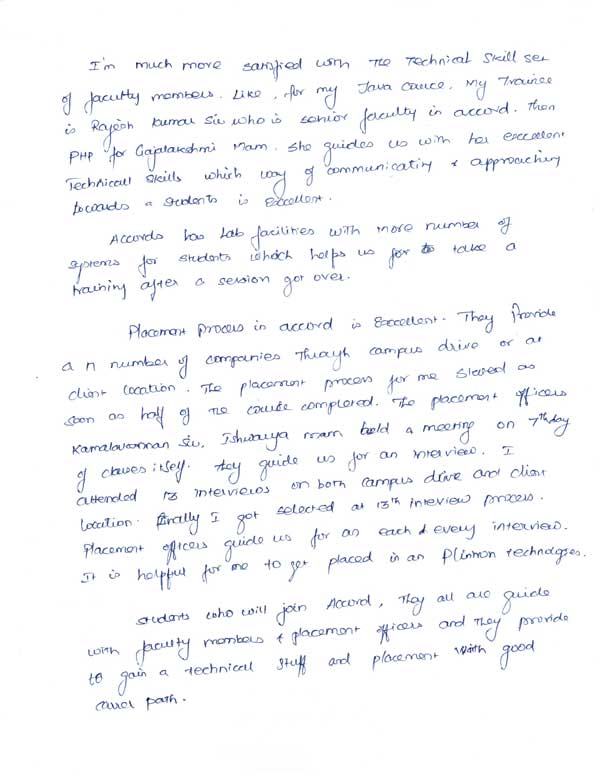 I'm much more satisfied with the Technical Skill set
of faculty members. Like, for my Java Cource, My Trainee
is Rajesh Kumar Sir who is senior faculty in accord. Then
PHP for Gajalakshmi Mam. She guides us with her excellent
Technicall skills which way of communicating & approaching
towards a students is Excellent.
Accords has Lab facilities with more number of
systems for students which helps us for to take a
training after a session got over.
Placement process in accord is Excellent. They Provide
a n number of companies Through campus drive or at
client location. The placement process for me started as
soon as half of the course completed. The placement officers
Kamalavannan Sir, Ishwarya mam held a meeting on 7th day
of classes itself. they guide us for an interview. I
attended 13 interviews on both campus drive and client
location. finally I got selected at 13th inteview process.
Placement officers guide us for an each & every interview.
It is helpful for me to get placed in an Plinnon technologses.
Students who will join Accord, They all are guide
with faculty members & placement officers and They provide
to gain a technical stuff and placement with good
path.